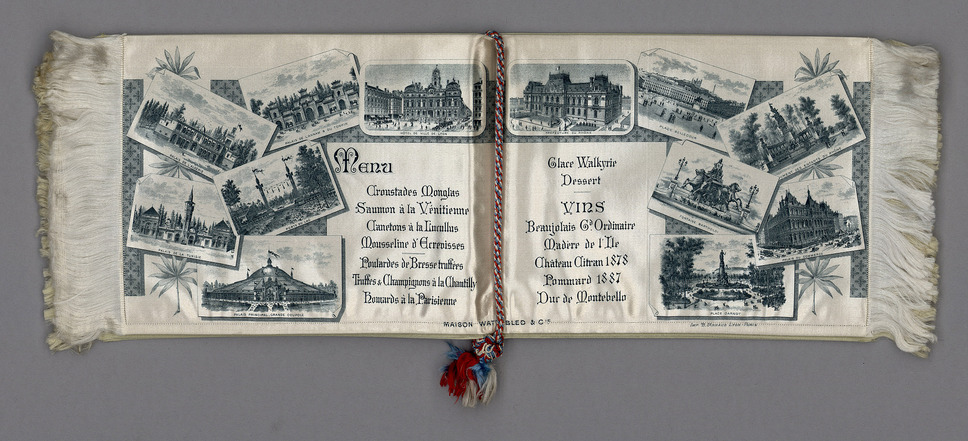 HÔTEL DE VILLE DE LYON
PLACE BELLECOUR
Menu
Croustades Monglas
Saumon à la Vénitienne
Canetons à la Lucullus
Mousseline d'Ecrevisses
Poulardes de Bresse truffées
Truffes & Champignons à la Chantilly
Homards à la Parisienne
PALAIS PRINCIPAL, GRANDE COUPOLE
Glace Walkyrie
Dessert
VINS
Beaujolais Gd Ordinaire
Madère de l'Ile
Château Citran 1878
Pommard 1887
Duc de Montebello
PLACE CARNOT
MAISON WATTEBLED & Cie